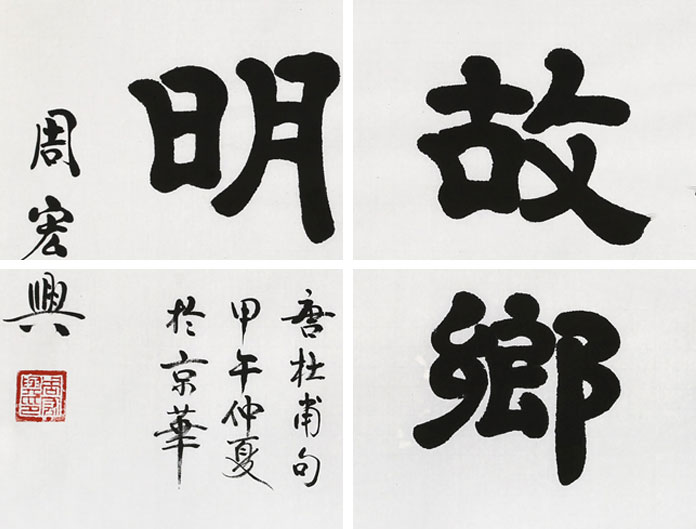 故鄉
明
唐杜甫句
甲午仲夏
於京華
周宏興